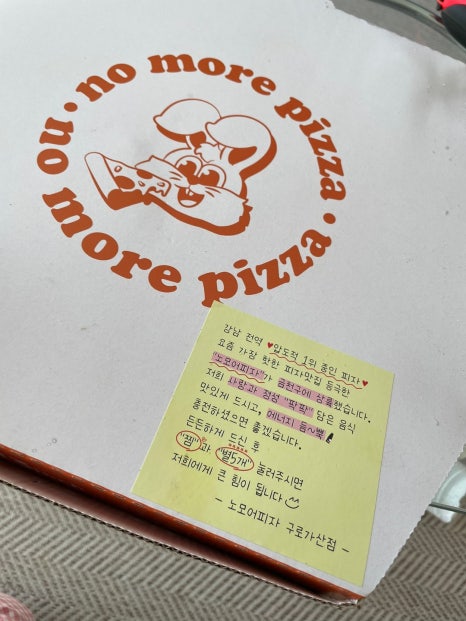 no more pizza · no more pizza ·
강남 전역 ♥압도적 1위 종인 피자♥
요즘 가장 핫한 피자맛집 등극한
"노모어피자"가 금천구에 상륙했습니다.
저희 사랑과 정성 "팍팍" 담은 음식
맛있게 드시고, 에너지 듬~뿍
충전하셨으면 좋겠습니다.
든든하게 드신 후
"찜"과 "별5개" 눌러주시면
저희에게 큰 힘이 됩니다
- 노모어피자 구로가산점 -